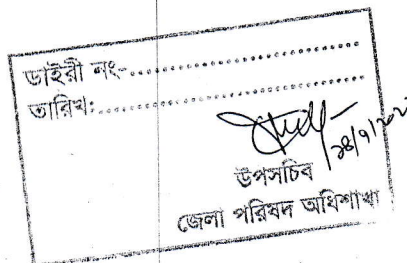 ডাইরী নং-..............................
তারিখ:..............................
উপসচিব
জেলা পরিষদ অধিশাখা